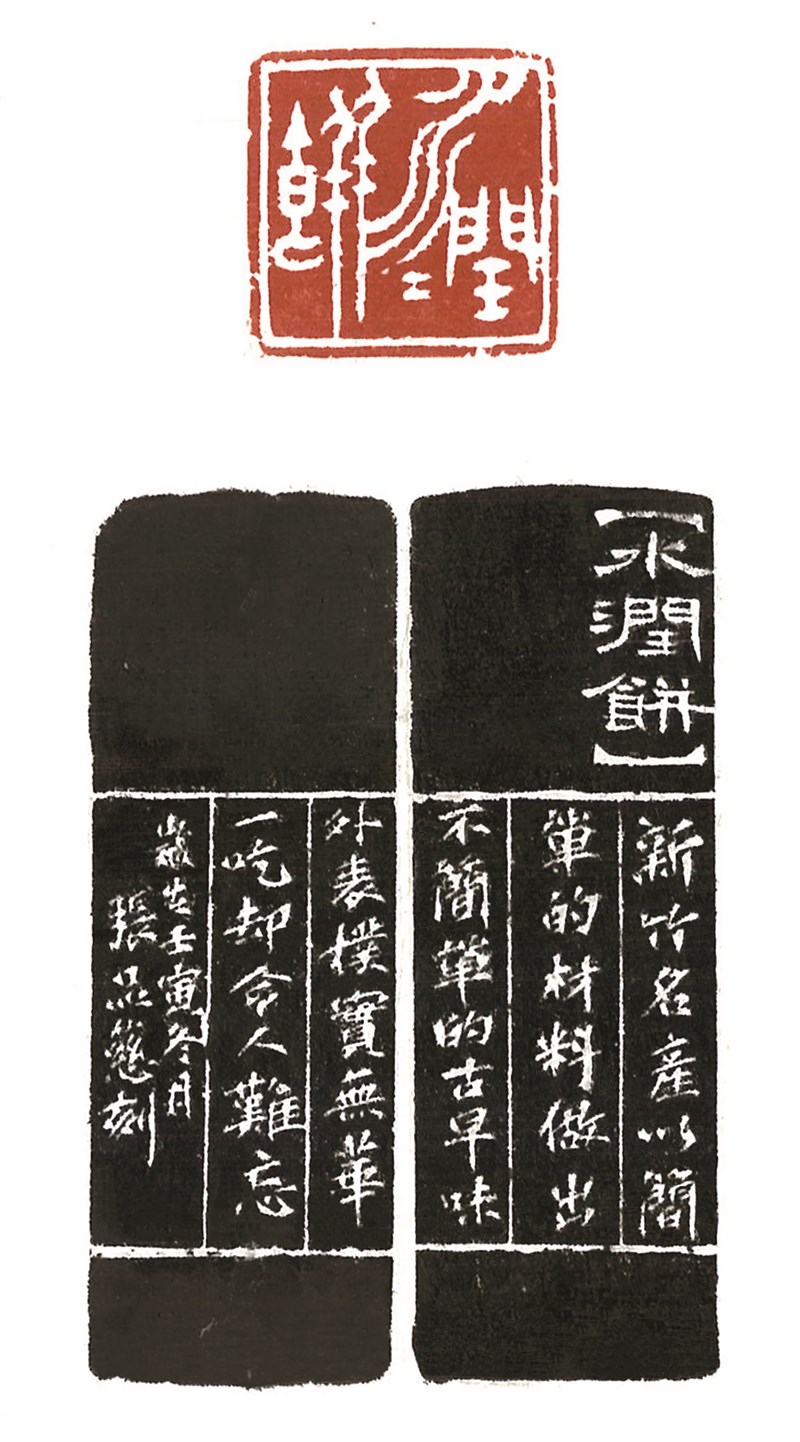 水潤餅
【水潤餅】
新竹名產以簡
單的材料做出
不簡單的古早味
外表樸實無華
一吃却令人難忘
歲在壬寅冬月
張品刻